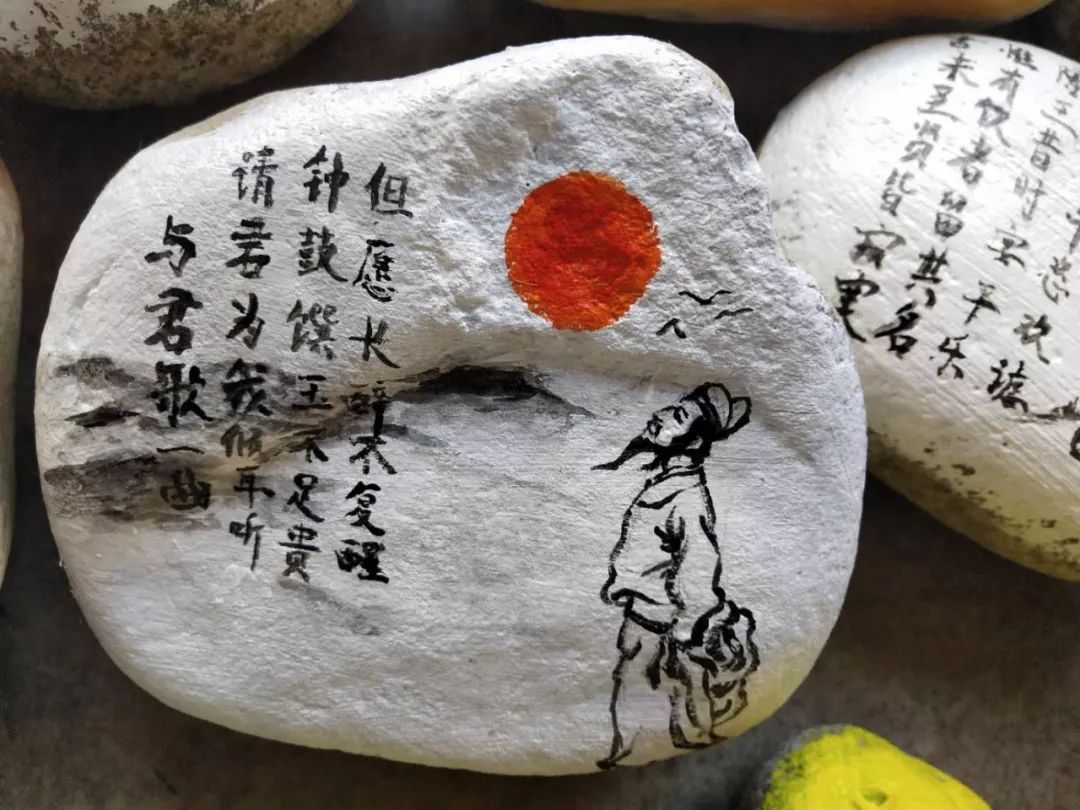 但愿长醉不复醒
钟鼓馔玉不足貴
请君为我倾耳听
与君歌一曲
千恣欢谑
陈王昔时宴平乐
惟有饮者留其名
古来圣贤皆寂寞